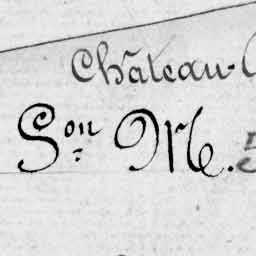 Château-
Son. M.